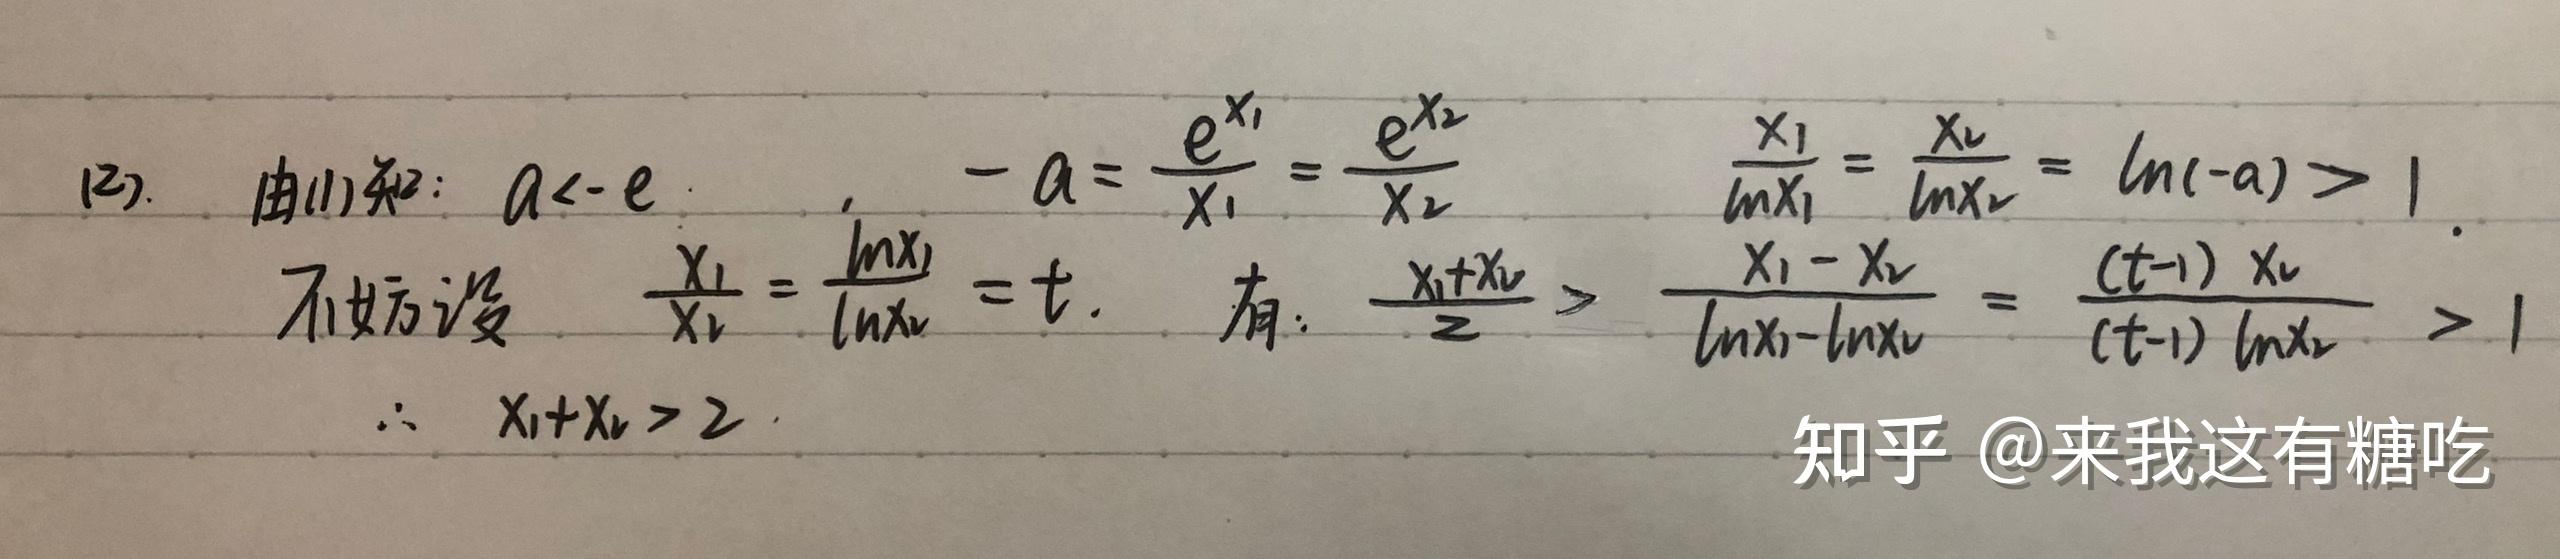 (2). 由(1)知: a<-e. , -a = e^{x₁}/x₁ = e^{x₂}/x₂ x₁/lnx₁ = x₂/lnx₂ = ln(-a) > 1.
不妨设 x₁/x₂ = lnx₁/lnx₂ = t. 有: (x₁+x₂)/2 > (x₁-x₂)/(lnx₁-lnx₂) = (t-1)x₂/(t-1)lnx₂ > 1
∴ x₁+x₂ > 2.
知乎 @来我这有糖吃